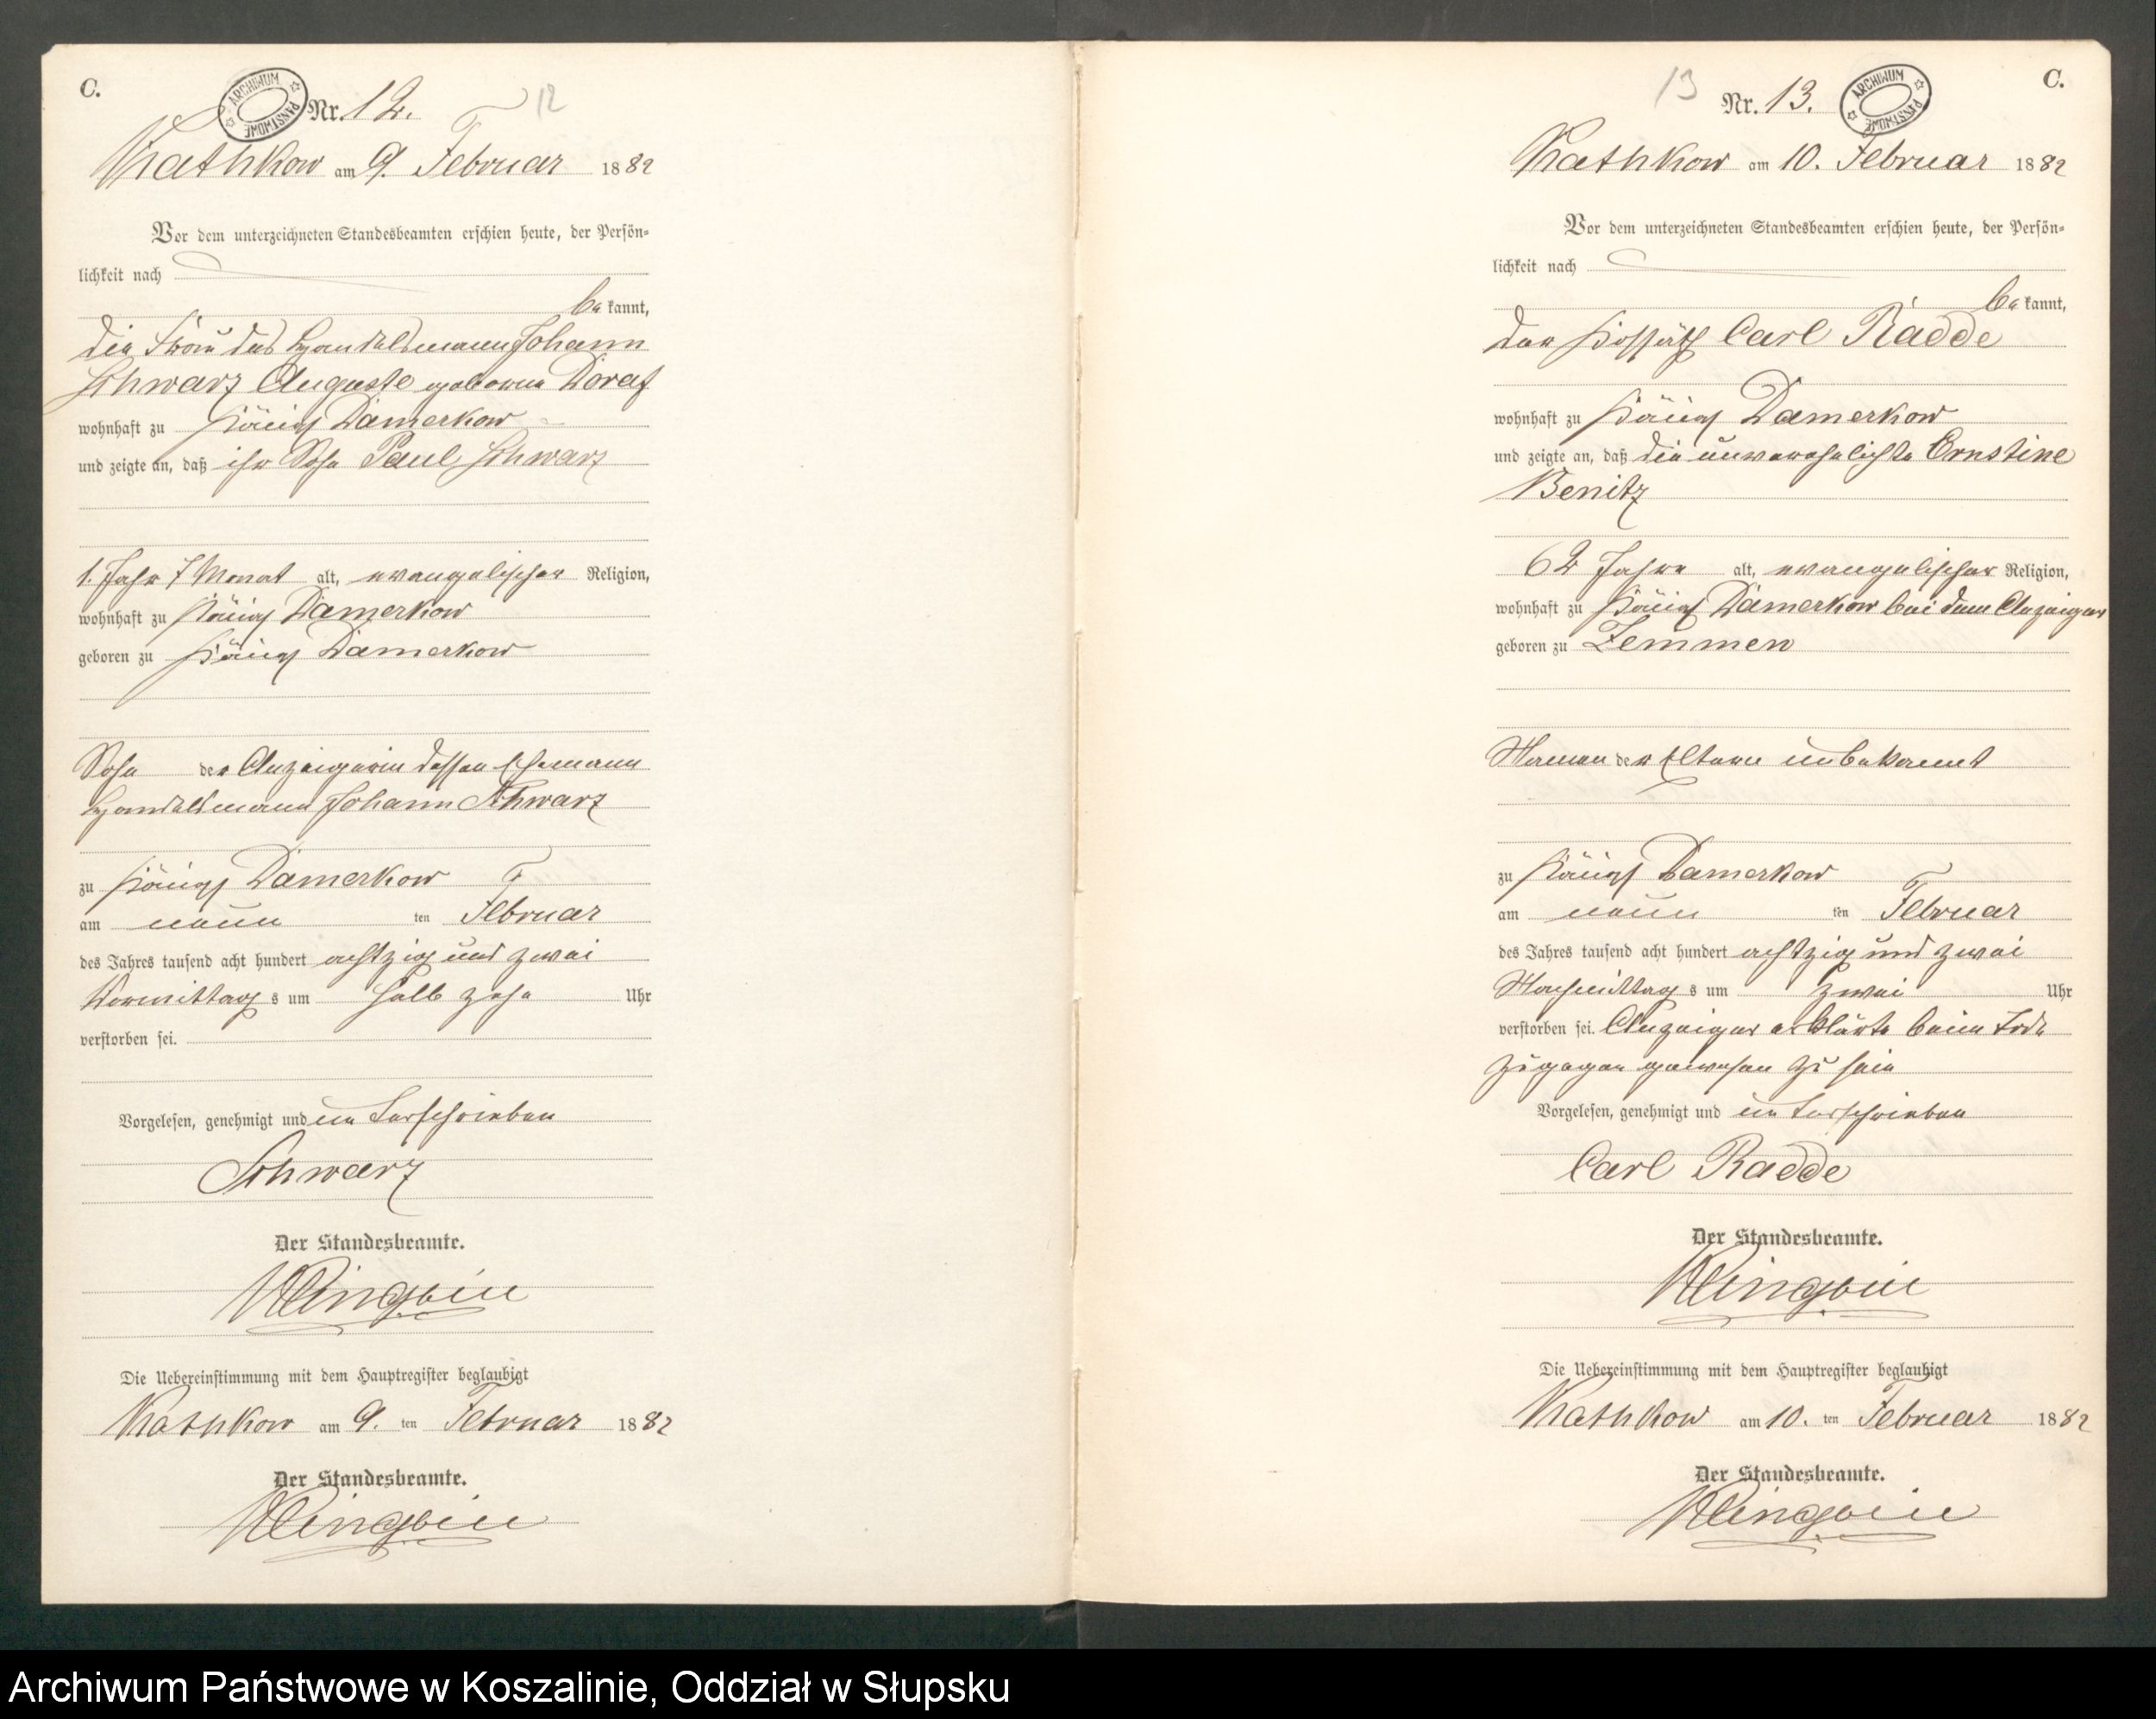 C.
ARCHIWUM PAŃSTWOWE
Nr. 12.
12
Rathkow am 9. Februar 1882
Vor dem unterzeichneten Standesbeamten erschien heute, der Persön-
lichkeit nach
be kannt,
die Frau des Handelsmann Johann
Schwarz Auguste geborene
wohnhaft zu Königs Damerkow
und zeigte an, daß ihr Sohn Paul Schwarz
1. Jahr 7 Monat alt, evangelischer Religion,
wohnhaft zu Königs Damerkow
geboren zu Königs Damerkow
Sohn der Anzeigerin dessen Ehemann
Handelsmann Johann Schwarz
zu Königs Damerkow
am neun ten Februar
des Jahres tausend acht hundert achtzig und zwei
Vormittags um halb zehn Uhr
verstorben sei.
Vorgelesen, genehmigt und unterschrieben
Schwarz
Der Standesbeamte.
Die Uebereinstimmung mit dem Hauptregister beglaubigt
Rathkow am 9. ten Februar 1882
Der Standesbeamte.
C.
13
Nr. 13.
ARCHIWUM PAŃSTWOWE
Rathkow am 10. Februar 1882
Vor dem unterzeichneten Standesbeamten erschien heute, der Persön-
lichkeit nach
be kannt,
der Kossäth Carl Radde
wohnhaft zu Königs Damerkow
und zeigte an, daß die unverehelichte Ernstine
Benitz
62 Jahre alt, evangelischer Religion,
wohnhaft zu Königs Damerkow bei dem Anzeiger
geboren zu Zemmen
Namen der Eltern unbekannt
zu Königs Damerkow
am neun ten Februar
des Jahres tausend acht hundert achtzig und zwei
Nachmittags um zwei Uhr
verstorben sei. Anzeiger erklärte beim Tode
zugegen gewesen zu sein
Vorgelesen, genehmigt und unterschrieben
Carl Radde
Der Standesbeamte.
Die Uebereinstimmung mit dem Hauptregister beglaubigt
Rathkow am 10. ten Februar 1882
Der Standesbeamte.
Archiwum Państwowe w Koszalinie, Oddział w Słupsku